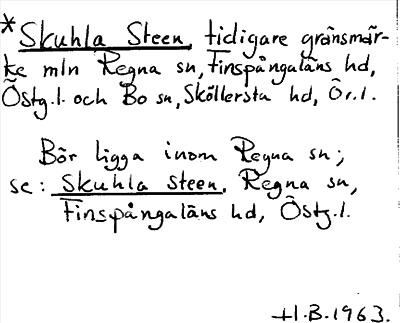 * Skuhla Steen, tidigare gränsmär-
ke mln Regna sn, Finspångaläns hd,
Östg.l. och Bo sn, Sköllersta hd, Ör.l.
Bör ligga inom Regna sn;
se: Skuhla Steen, Regna sn,
Finspångaläns hd, Östg.l.
H.B. 1963.